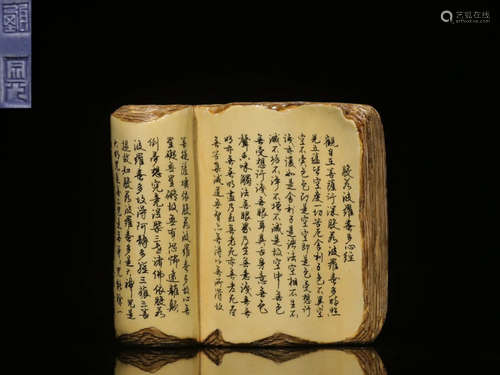 般若波羅蜜多心經
觀自在菩薩行深般若波羅蜜多時照
見五蘊皆空度一切苦厄舍利子色不異空
空不異色色即是空空即是色受想行
識亦復如是舍利子是諸法空相不生不
滅不垢不淨不增不減是故空中無色
無受想行識無眼耳鼻舌身意無色
聲香味觸法無眼界乃至無意識界無無
明亦無無明盡乃至無老死亦無老死盡
無苦集滅道無智亦無得以無所得故
菩提薩埵依般若波羅蜜多故心無
罣礙無罣礙故無有恐怖遠離顛
倒夢想究竟涅槃三世諸佛依般若
波羅蜜多故得阿耨多羅三藐三菩
提故知般若波羅蜜多是大神咒是
艺狐在线